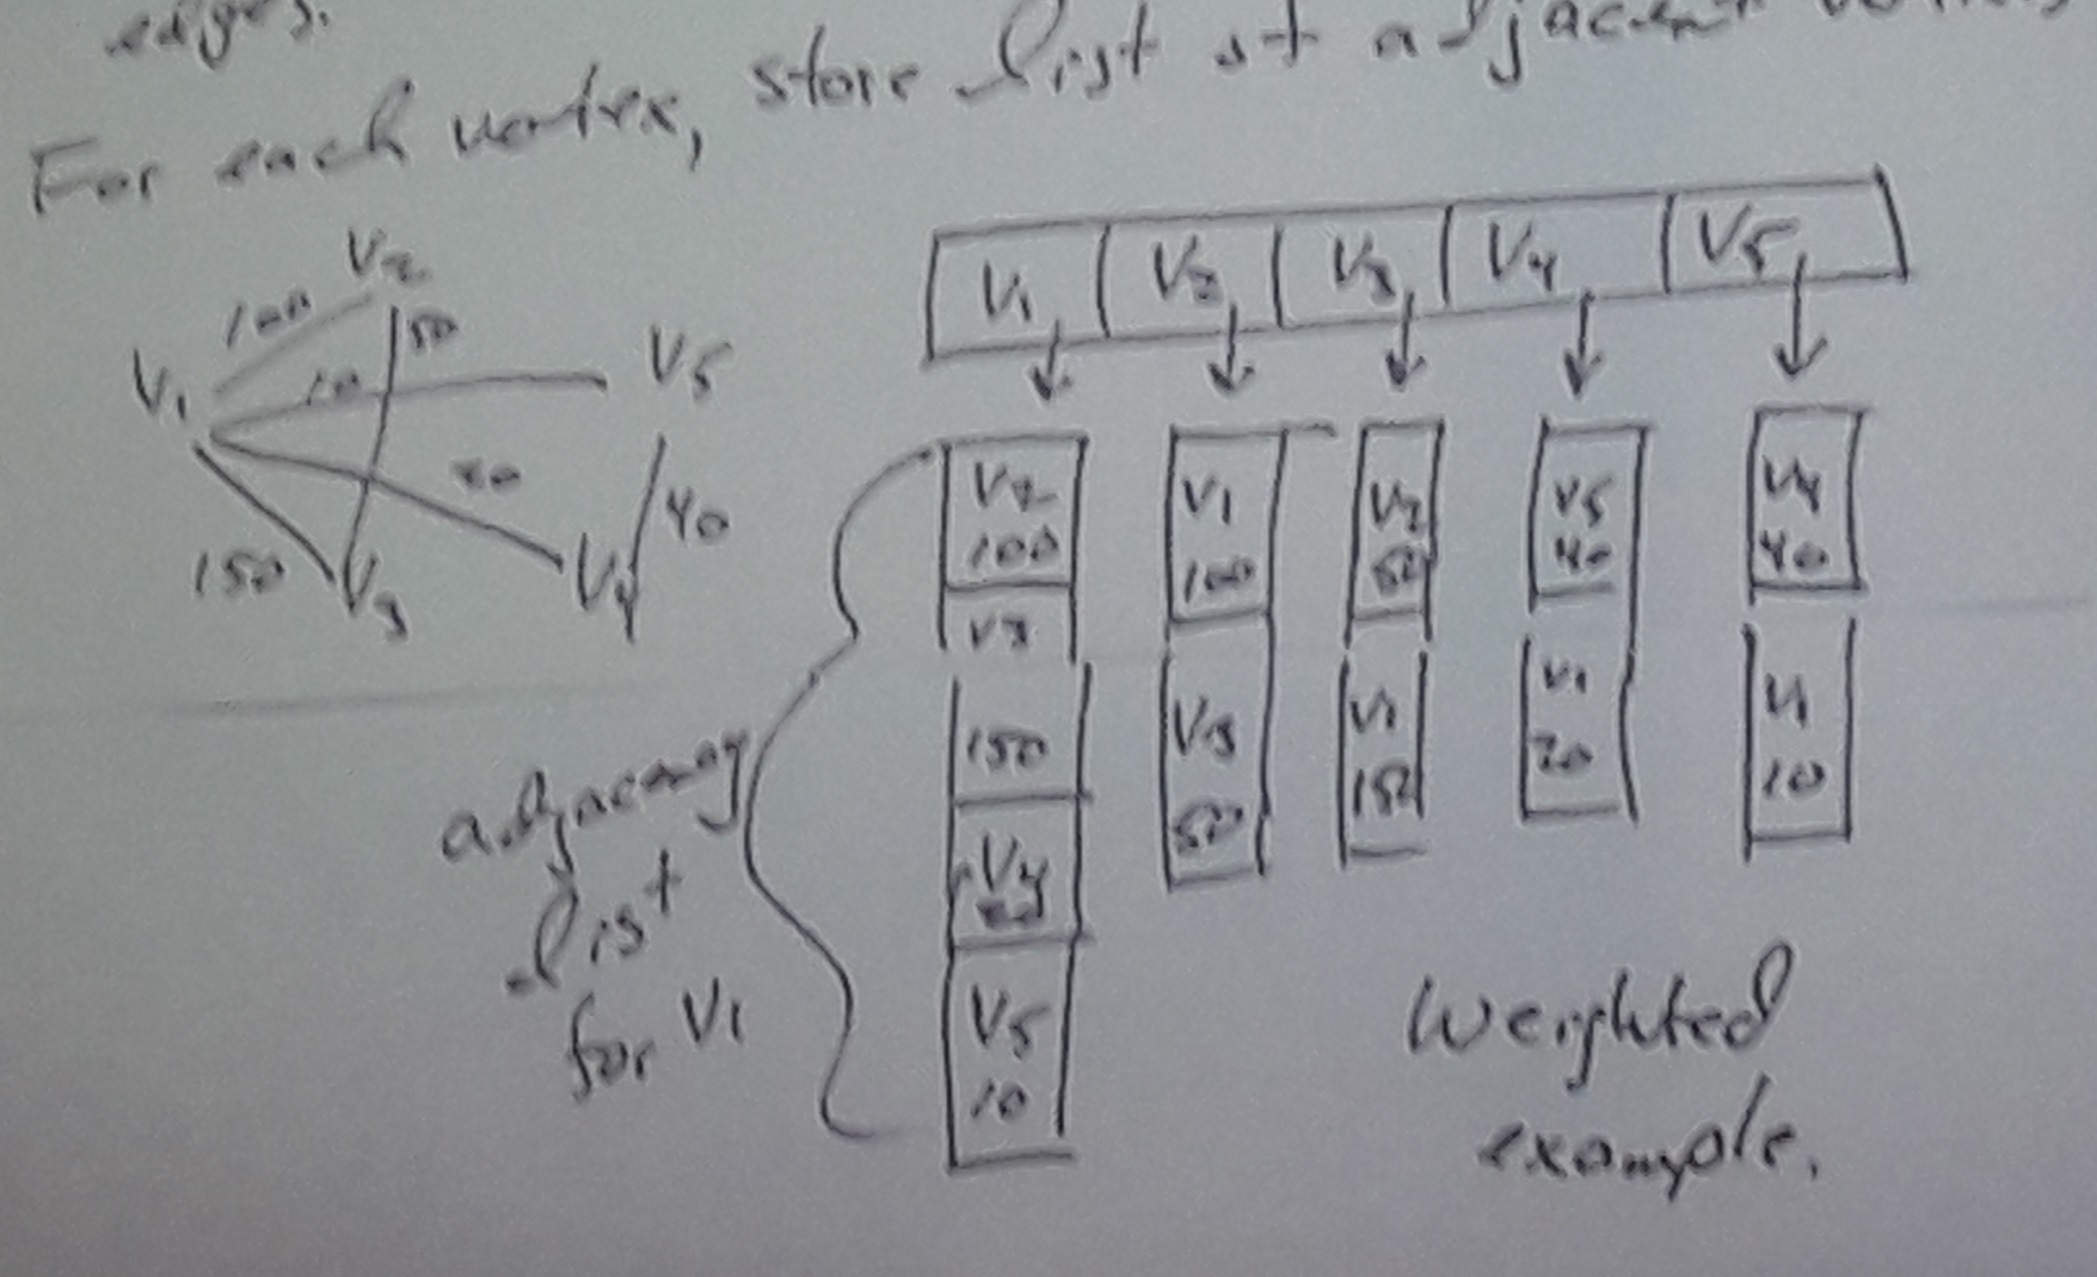 edges.
For each vertex, store list of adjacent
V1 V2 V3 V4 V5
V2
100
50
V1
10
V5
20
40
150
V3
V4
V2
100
V3
150
V4
20
V5
10
V1
100
V3
50
V2
50
V1
150
V5
40
V1
20
V4
40
V1
10
adjacency
list
for V1
Weighted
example.